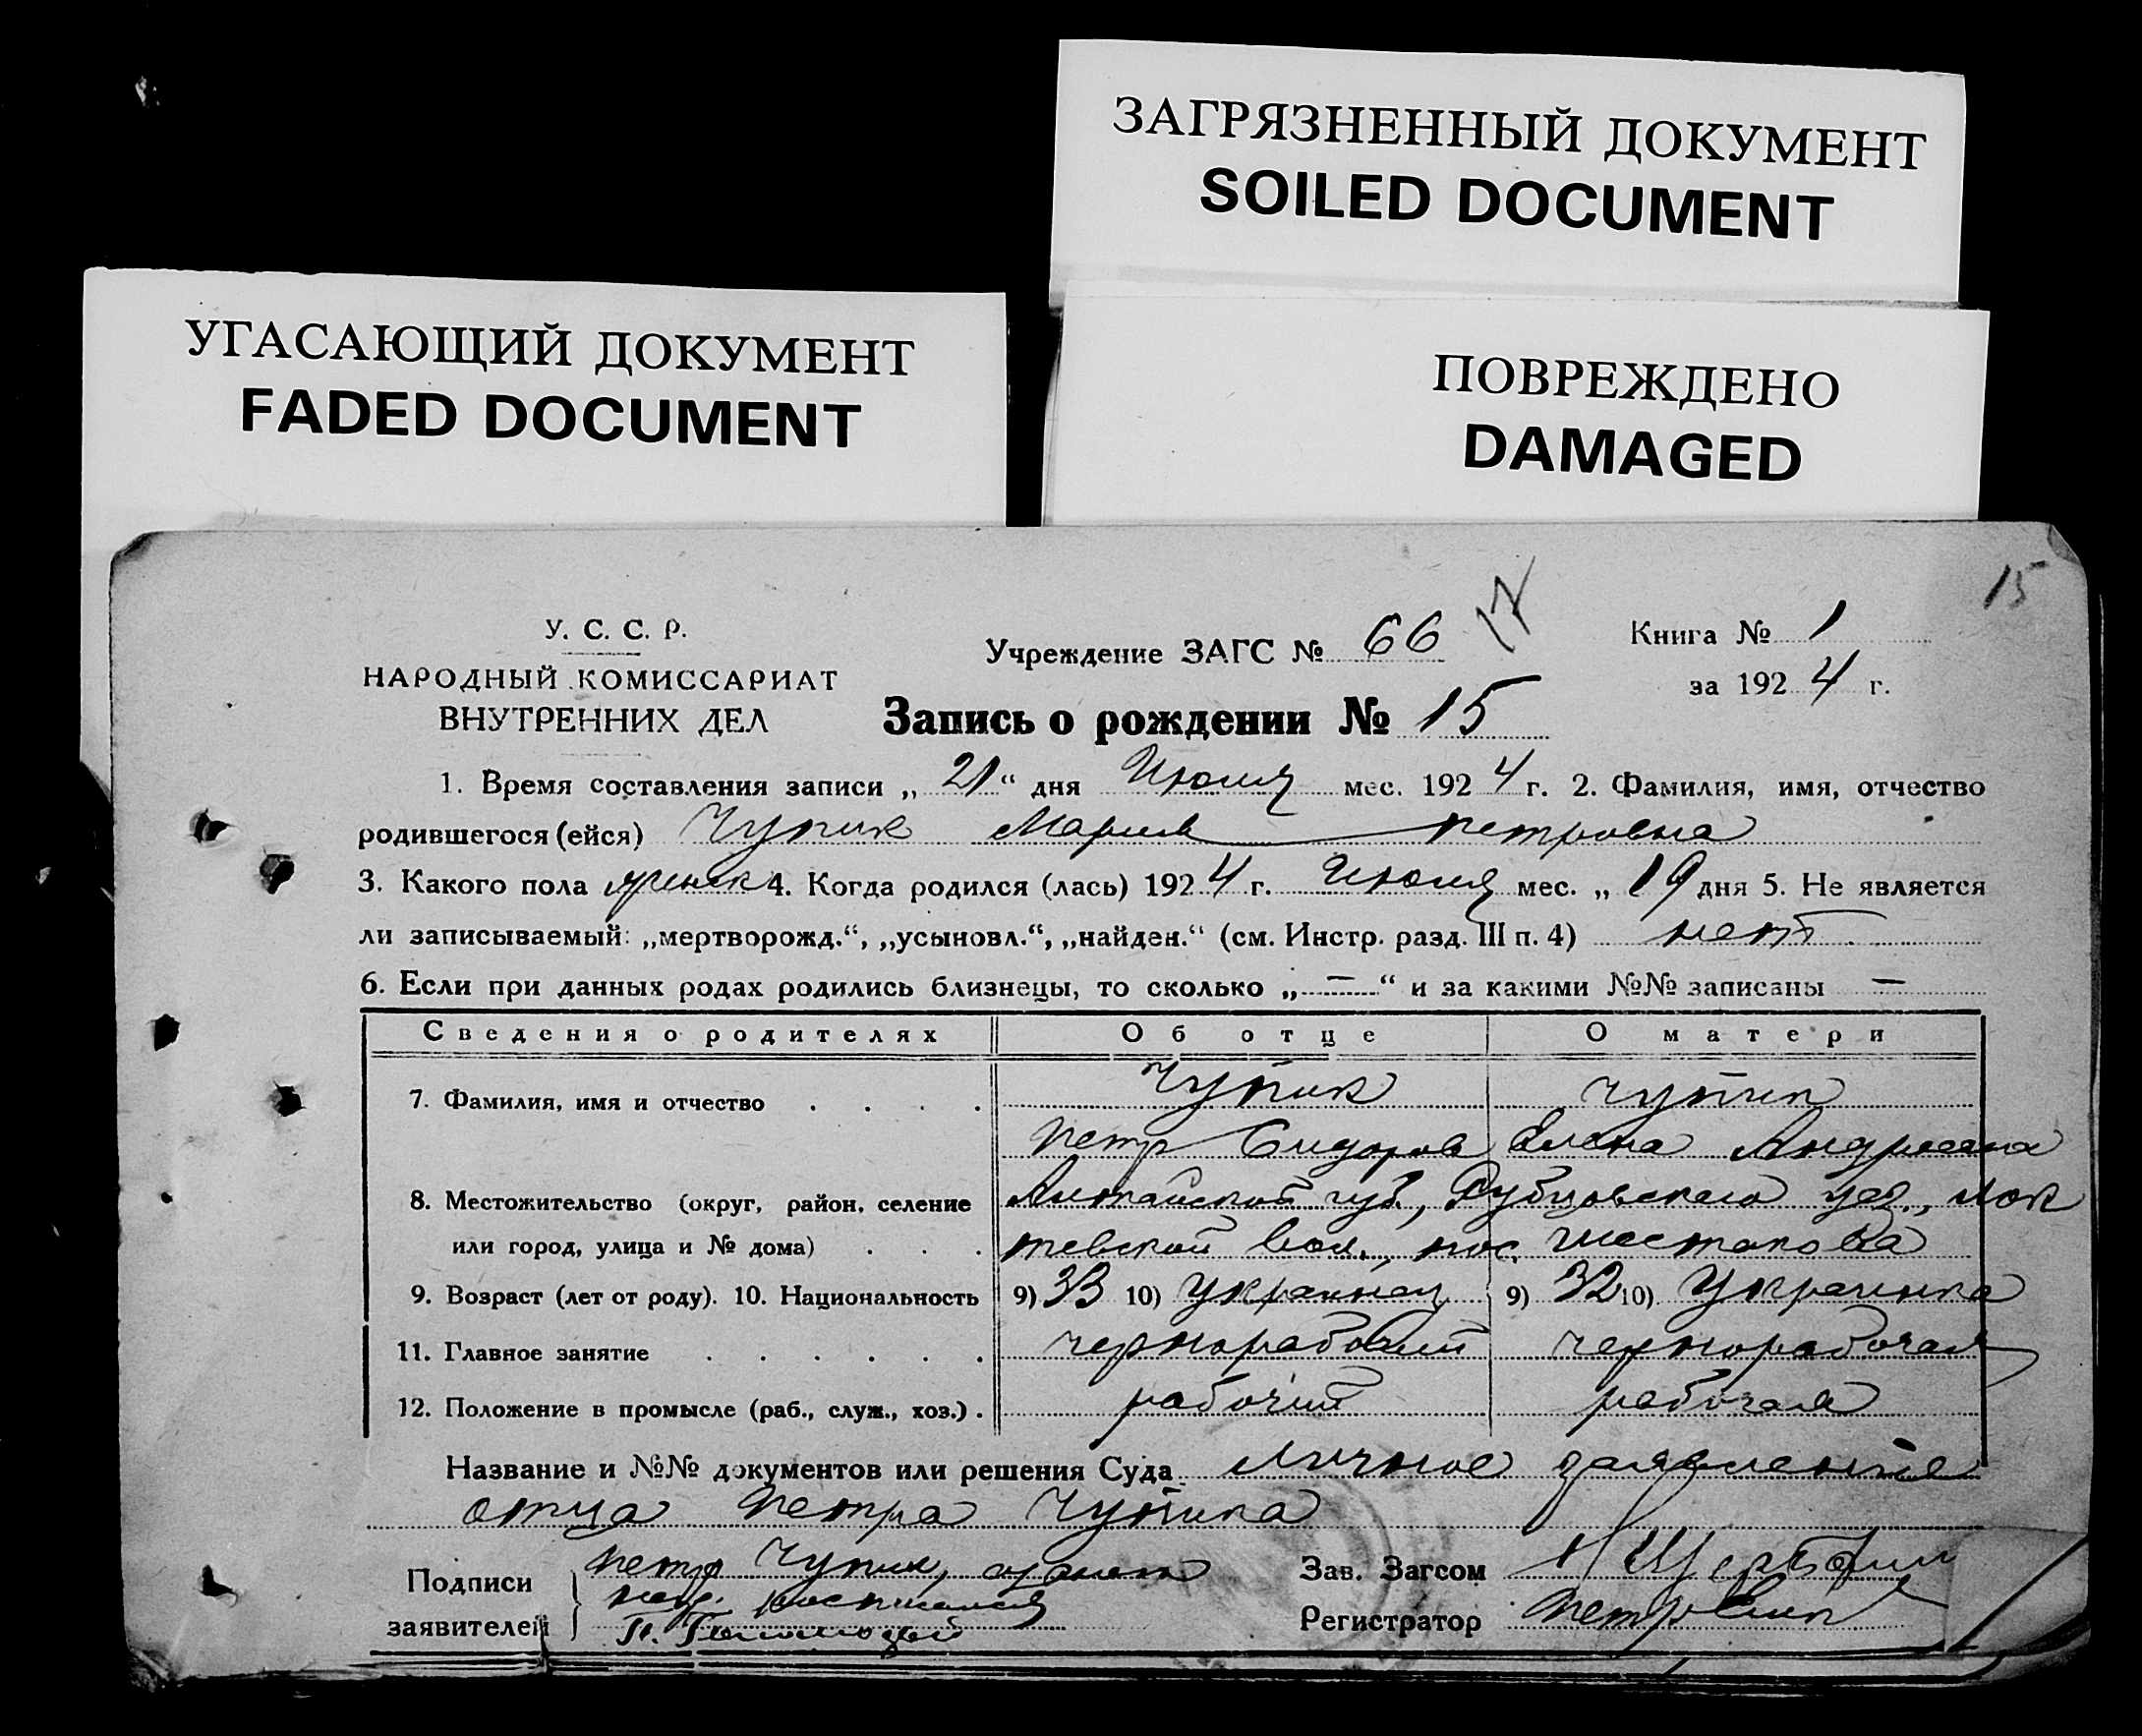 ЗАГРЯЗНЕННЫЙ ДОКУМЕНТ
SOILED DOCUMENT
УГАСАЮЩИЙ ДОКУМЕНТ
FADED DOCUMENT
ПОВРЕЖДЕНО
DAMAGED
15
У. С. С. Р.
НАРОДНЫЙ КОМИССАРИАТ
ВНУТРЕННИХ ДЕЛ
Учреждение ЗАГС № 66 17
Книга № 1
за 1924 г.
Запись о рождении № 15
1. Время составления записи „21“ дня Июля мес. 1924 г. 2. Фамилия, имя, отчество
родившегося (ейся) Чупик Мария Петровна
3. Какого пола женск 4. Когда родился (лась) 1924 г. Июля мес. „19 дня 5. Не является
ли записываемый: „мертворожд.“, „усыновл.“, „найден.“ (см. Инстр. разд. III п. 4) нет
6. Если при данных родах родились близнецы, то сколько „—“ и за какими №№ записаны —
Сведения о родителях Об отце О матери
7. Фамилия, имя и отчество . . . . Чупик Чупик
Петр Сидоров Елена Андреевна
8. Местожительство (округ, район, селение Алтайской губ., Рубцовского уез., Лок
или город, улица и № дома) . . . тевской вол., пос. Шестакова
9. Возраст (лет от роду). 10. Национальность 9) 33 10) Украинец 9) 32 10) Украинка
11. Главное занятие . . . . . . чернорабочий чернорабочая
12. Положение в промысле (раб., служ., хоз.) . рабочий рабочая
Название и №№ документов или решения Суда Личное заявление
отца Петра Чупика
Подписи Петр Чупик,
заявителей
Зав. Загсом
Регистратор